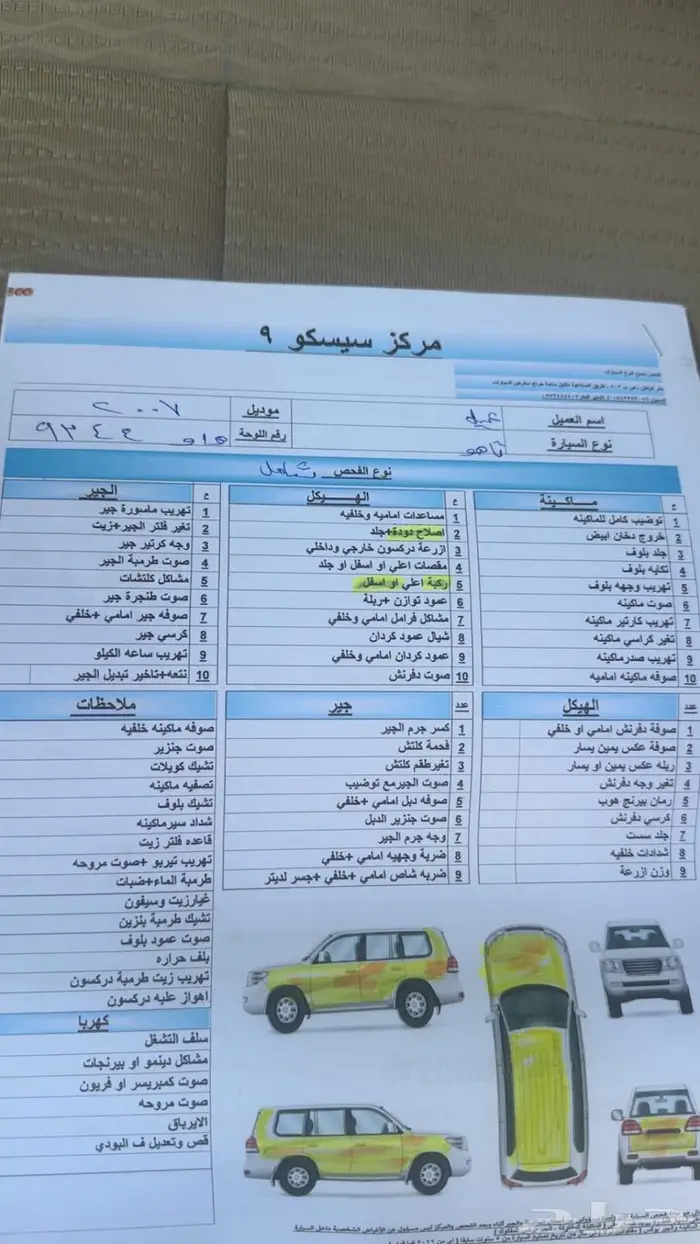 مركز سيسكو ٩
اسم العميل
عميل
موديل
٢٠٠٧
نوع السيارة
تاهو
رقم اللوحة
٩٣٤٤
نوع الفحص شامل
ع ماكينة
1 توضيب كامل للماكينه
2 خروج دخان ابيض
3 جلد بلوف
4 تكايه بلوف
5 تهريب وجهه بلوف
6 صوت ماكينه
7 تهريب كارتير ماكينه
8 تغير كراسي ماكينه
9 تهريب صدرماكينه
10 صوفه ماكينه اماميه
ع الهيكل
1 مساعدات اماميه وخلفيه
2 اصلاح دودة+جلد
3 ازرعة دركسون خارجي وداخلي
4 مقصات اعلي او اسفل او جلد
5 ركبة اعلي او اسفل
6 عمود توازن +ربلة
7 مشاكل فرامل امامي وخلفي
8 شيال عمود كردان
9 عمود كردان امامي وخلفي
10 صوت دفرنش
ع الجير
1 تهريب ماسورة جير
2 تغير فلتر الجير+زيت
3 وجه كرتير جير
4 صوت طرمبة الجير
5 مشاكل كلتشات
6 صوت طنجرة جير
7 صوفه جير امامي +خلفي
8 كرسي جير
9 تهريب ساعه الكيلو
10 نتعه+تاخير تبديل الجير
عدد الهيكل
1 صوفة دفرنش امامي او خلفي
2 صوفة عكس يمين يسار
3 ربله عكس يمين او يسار
4 تغير وجه دفرنش
5 رمان بيرنج هوب
6 كرسي دفرنش
7 جلد سست
8 شدادات خلفيه
9 وزن ازرعة
عدد جير
1 كسر جرم الجير
2 فحمة كلتش
3 تغيرطقم كلتش
4 صوت الجيرمع توضيب
5 صوفه دبل امامي +خلفي
6 صوت جنزير الدبل
7 وجه جرم الجير
8 ضربة وجهيه امامي +خلفي
9 ضربه شاص امامي +خلفي +جسر لديتر
ملاحظات
صوفه ماكينه خلفيه
صوت جنزير
تشيك كويلات
تصفيه ماكينه
تشيك بلوف
شداد سيرماكينه
قاعده فلتر زيت
تهريب تيربو +صوت مروحه
طرمبة الماء+ضبات
غيارزيت وسيفون
تشيك طرمبة بنزين
صوت عمود بلوف
بلف حراره
تهريب زيت طرمبة دركسون
اهواز علبه دركسون
كهربا
سلف التشغل
مشاكل دينمو او بيرنجات
صوت كمبريسر او فريون
صوت مروحه
الايرباق
قص وتعديل ف البودي